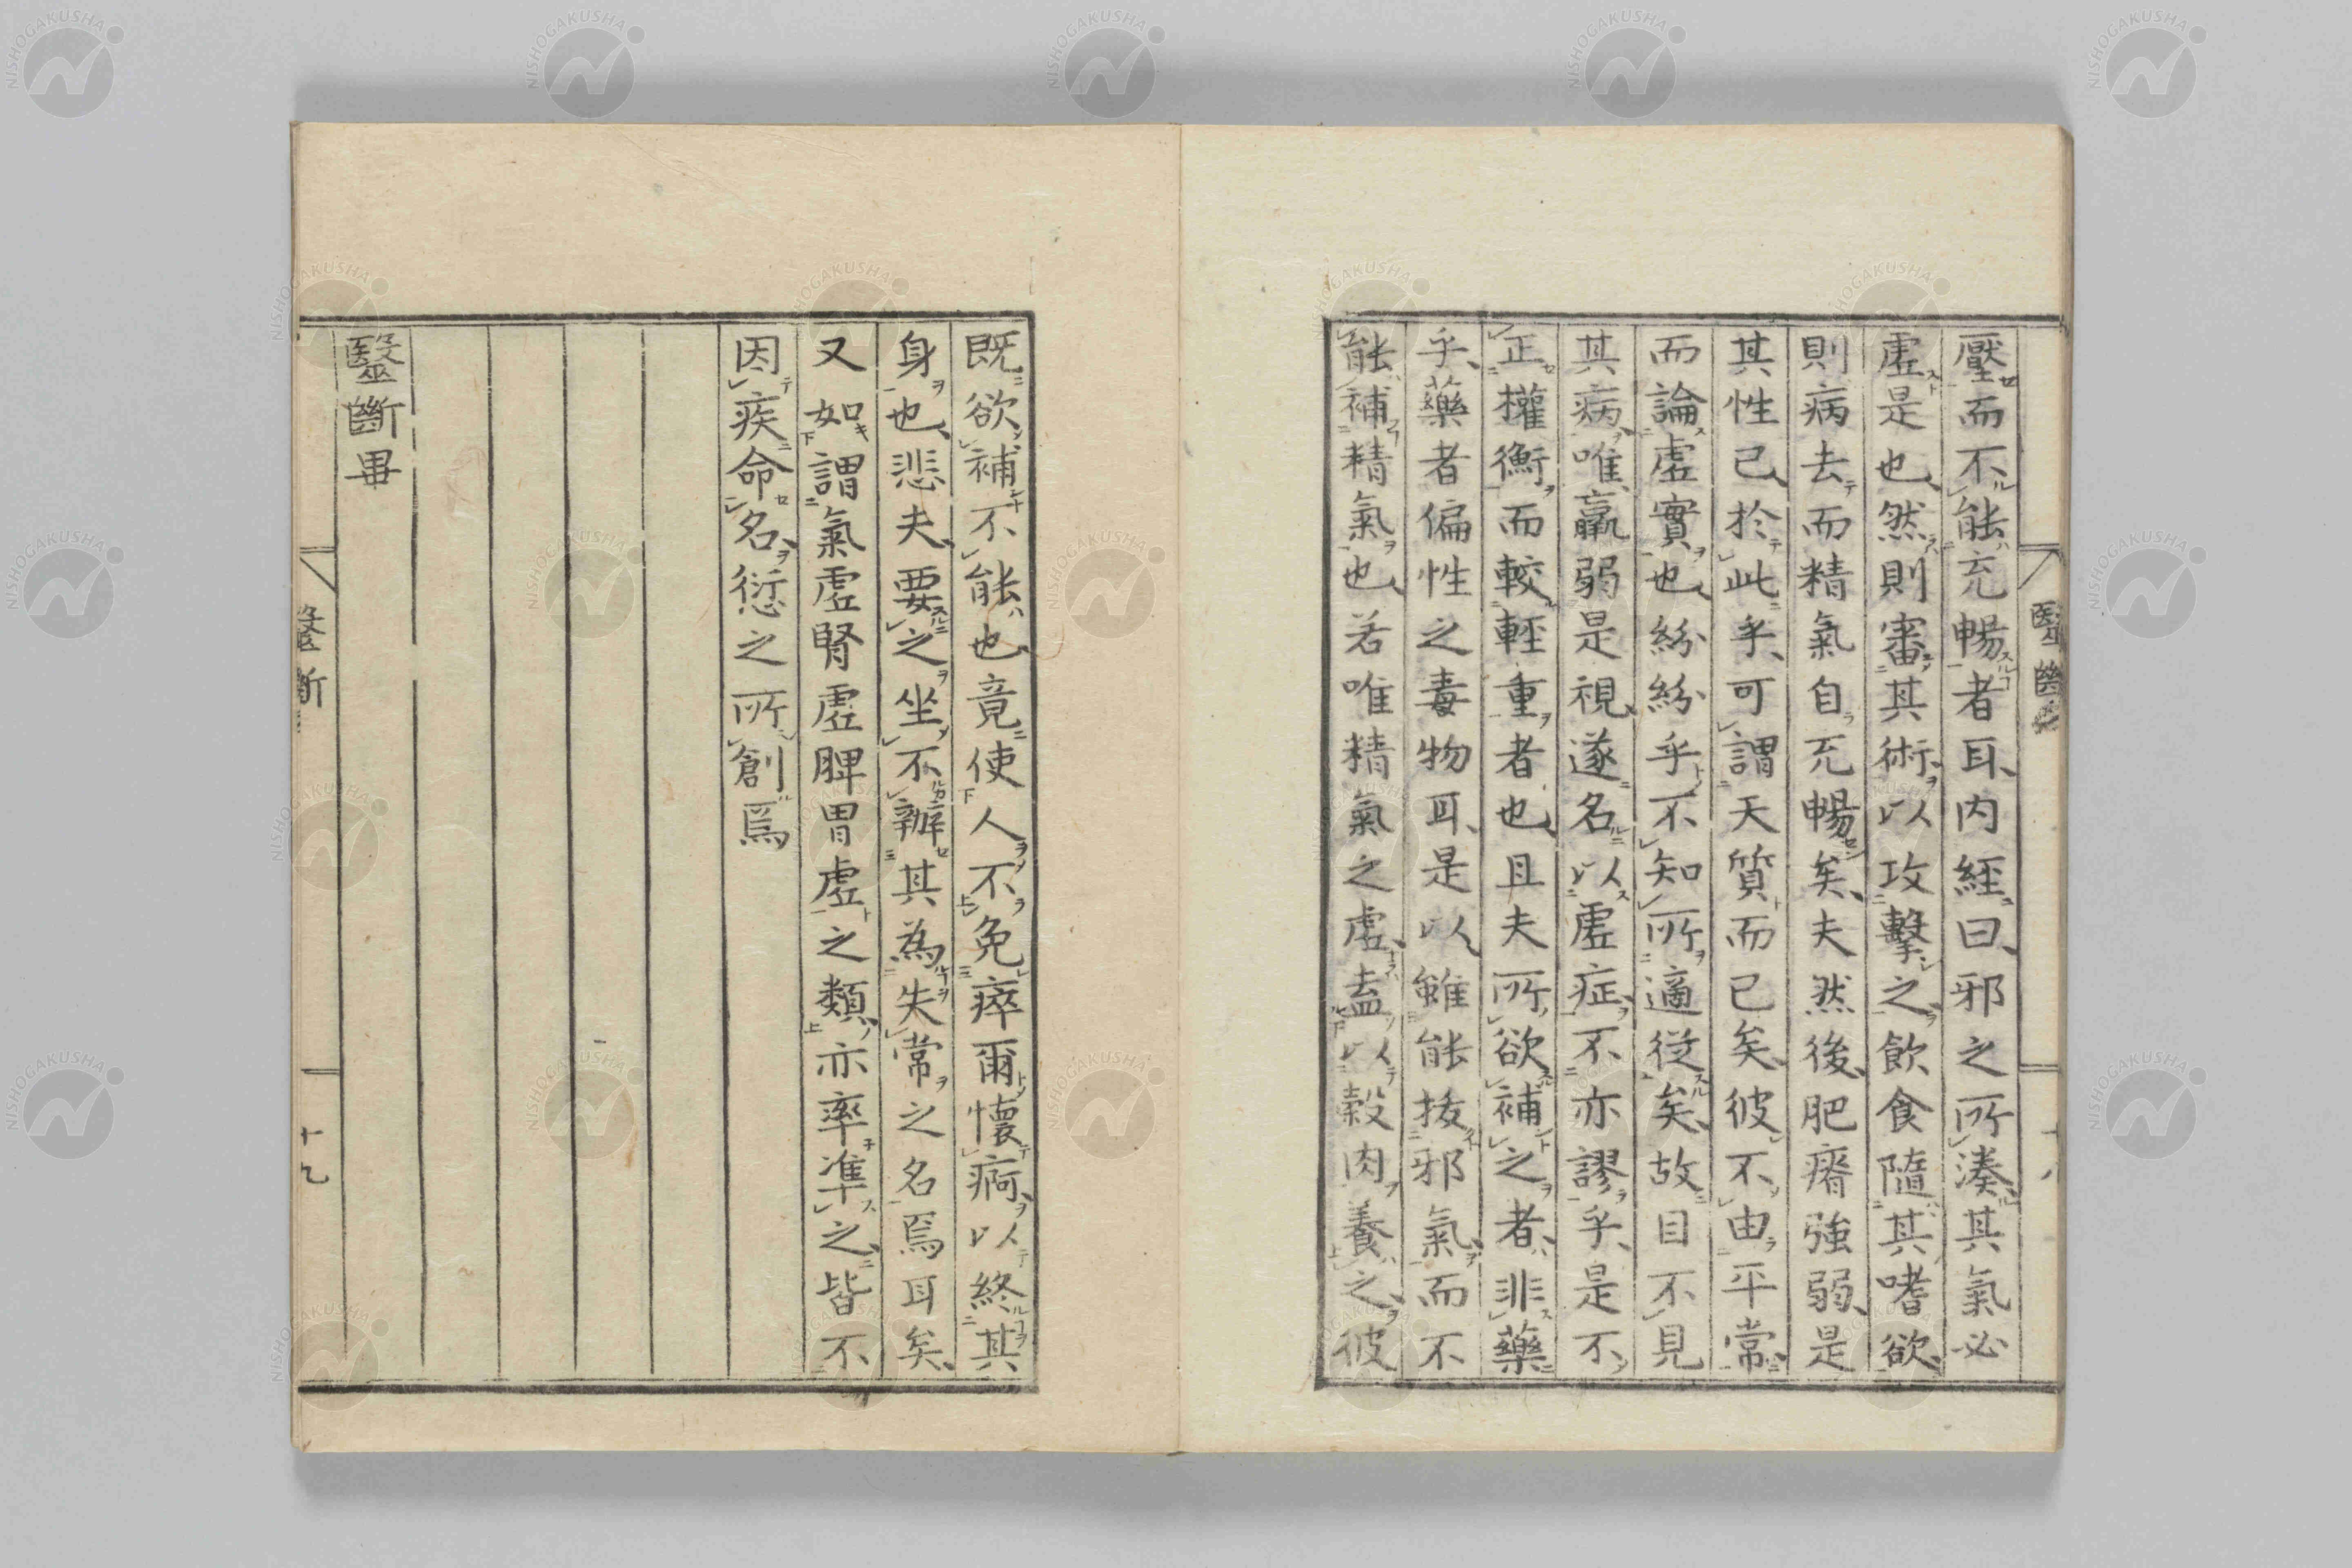 壓而不能充暢者耳、内經曰、邪之所湊、其氣必
虛是也、然則審其術、以攻擊之、飲食隨其嗜欲、
則病去而精氣自充暢矣、夫然後、肥瘠強弱、是
其性已、於此乎、可謂天質而已矣、彼不由平常、
而論虛實也、紛紛乎不知所適從矣、故目不見
其病、唯羸弱是視、遂名以虛症、不亦謬乎、是不
正權衡而較輕重者也、且夫所欲補之者、非藥
乎、藥者偏性之毒物耳、是以雖能拔邪氣、而不
能補精氣也、若唯精氣之虛、盍以穀肉養之、彼
既欲補不能也、竟使人不免瘁爾懷痾、以終其
身也、悲夫、要之坐不辨其為失常之名焉耳矣、
又如謂氣虛腎虛脾胃虛之類、亦率準之、皆不
因疾命名、愆之所創焉
醫斷畢
醫斷
十九
NISHOGAKUSHA